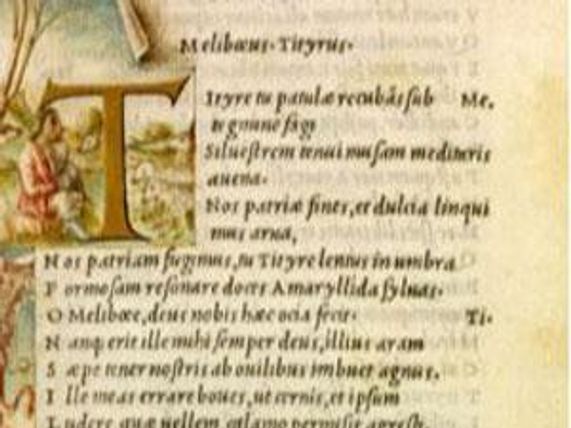 Meliboeus. Tityrus.
Tityre tu patulæ recubãs sub Me.
tegmine fagi
Siluestrem tenui musam meditaris
auena.
Nos patriæ fines, et dulcia linqui
mus arua,
Nos patriam fugimus, tu Tityre lentus in umbra
Formosam resonare doces Amaryllida syluas.
O Meliboee, deus nobis hæc ocia fecit. Ti.
Nanq; erit ille mihi semper deus, illius aram
Sæpe tener nostris ab ouilibus imbuet agnus.
Ille meas errare boues, ut cernis, et ipsum
Ludere quæ uellem calamo permisit agresti.